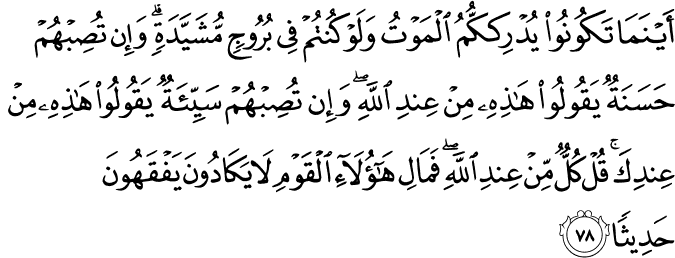 أَيۡنَمَا تَكُونُواْ يُدۡرِككُّمُ ٱلۡمَوۡتُ وَلَوۡ كُنتُمۡ فِي بُرُوجٖ مُّشَيَّدَةٖۗ وَإِن تُصِبۡهُمۡ
حَسَنَةٞ يَقُولُواْ هَٰذِهِۦ مِنۡ عِندِ ٱللَّهِۖ وَإِن تُصِبۡهُمۡ سَيِّئَةٞ يَقُولُواْ هَٰذِهِۦ مِنۡ
عِندِكَۚ قُلۡ كُلّٞ مِّنۡ عِندِ ٱللَّهِۖ فَمَالِ هَٰٓؤُلَآءِ ٱلۡقَوۡمِ لَا يَكَادُونَ يَفۡقَهُونَ
حَدِيثٗا ٧٨